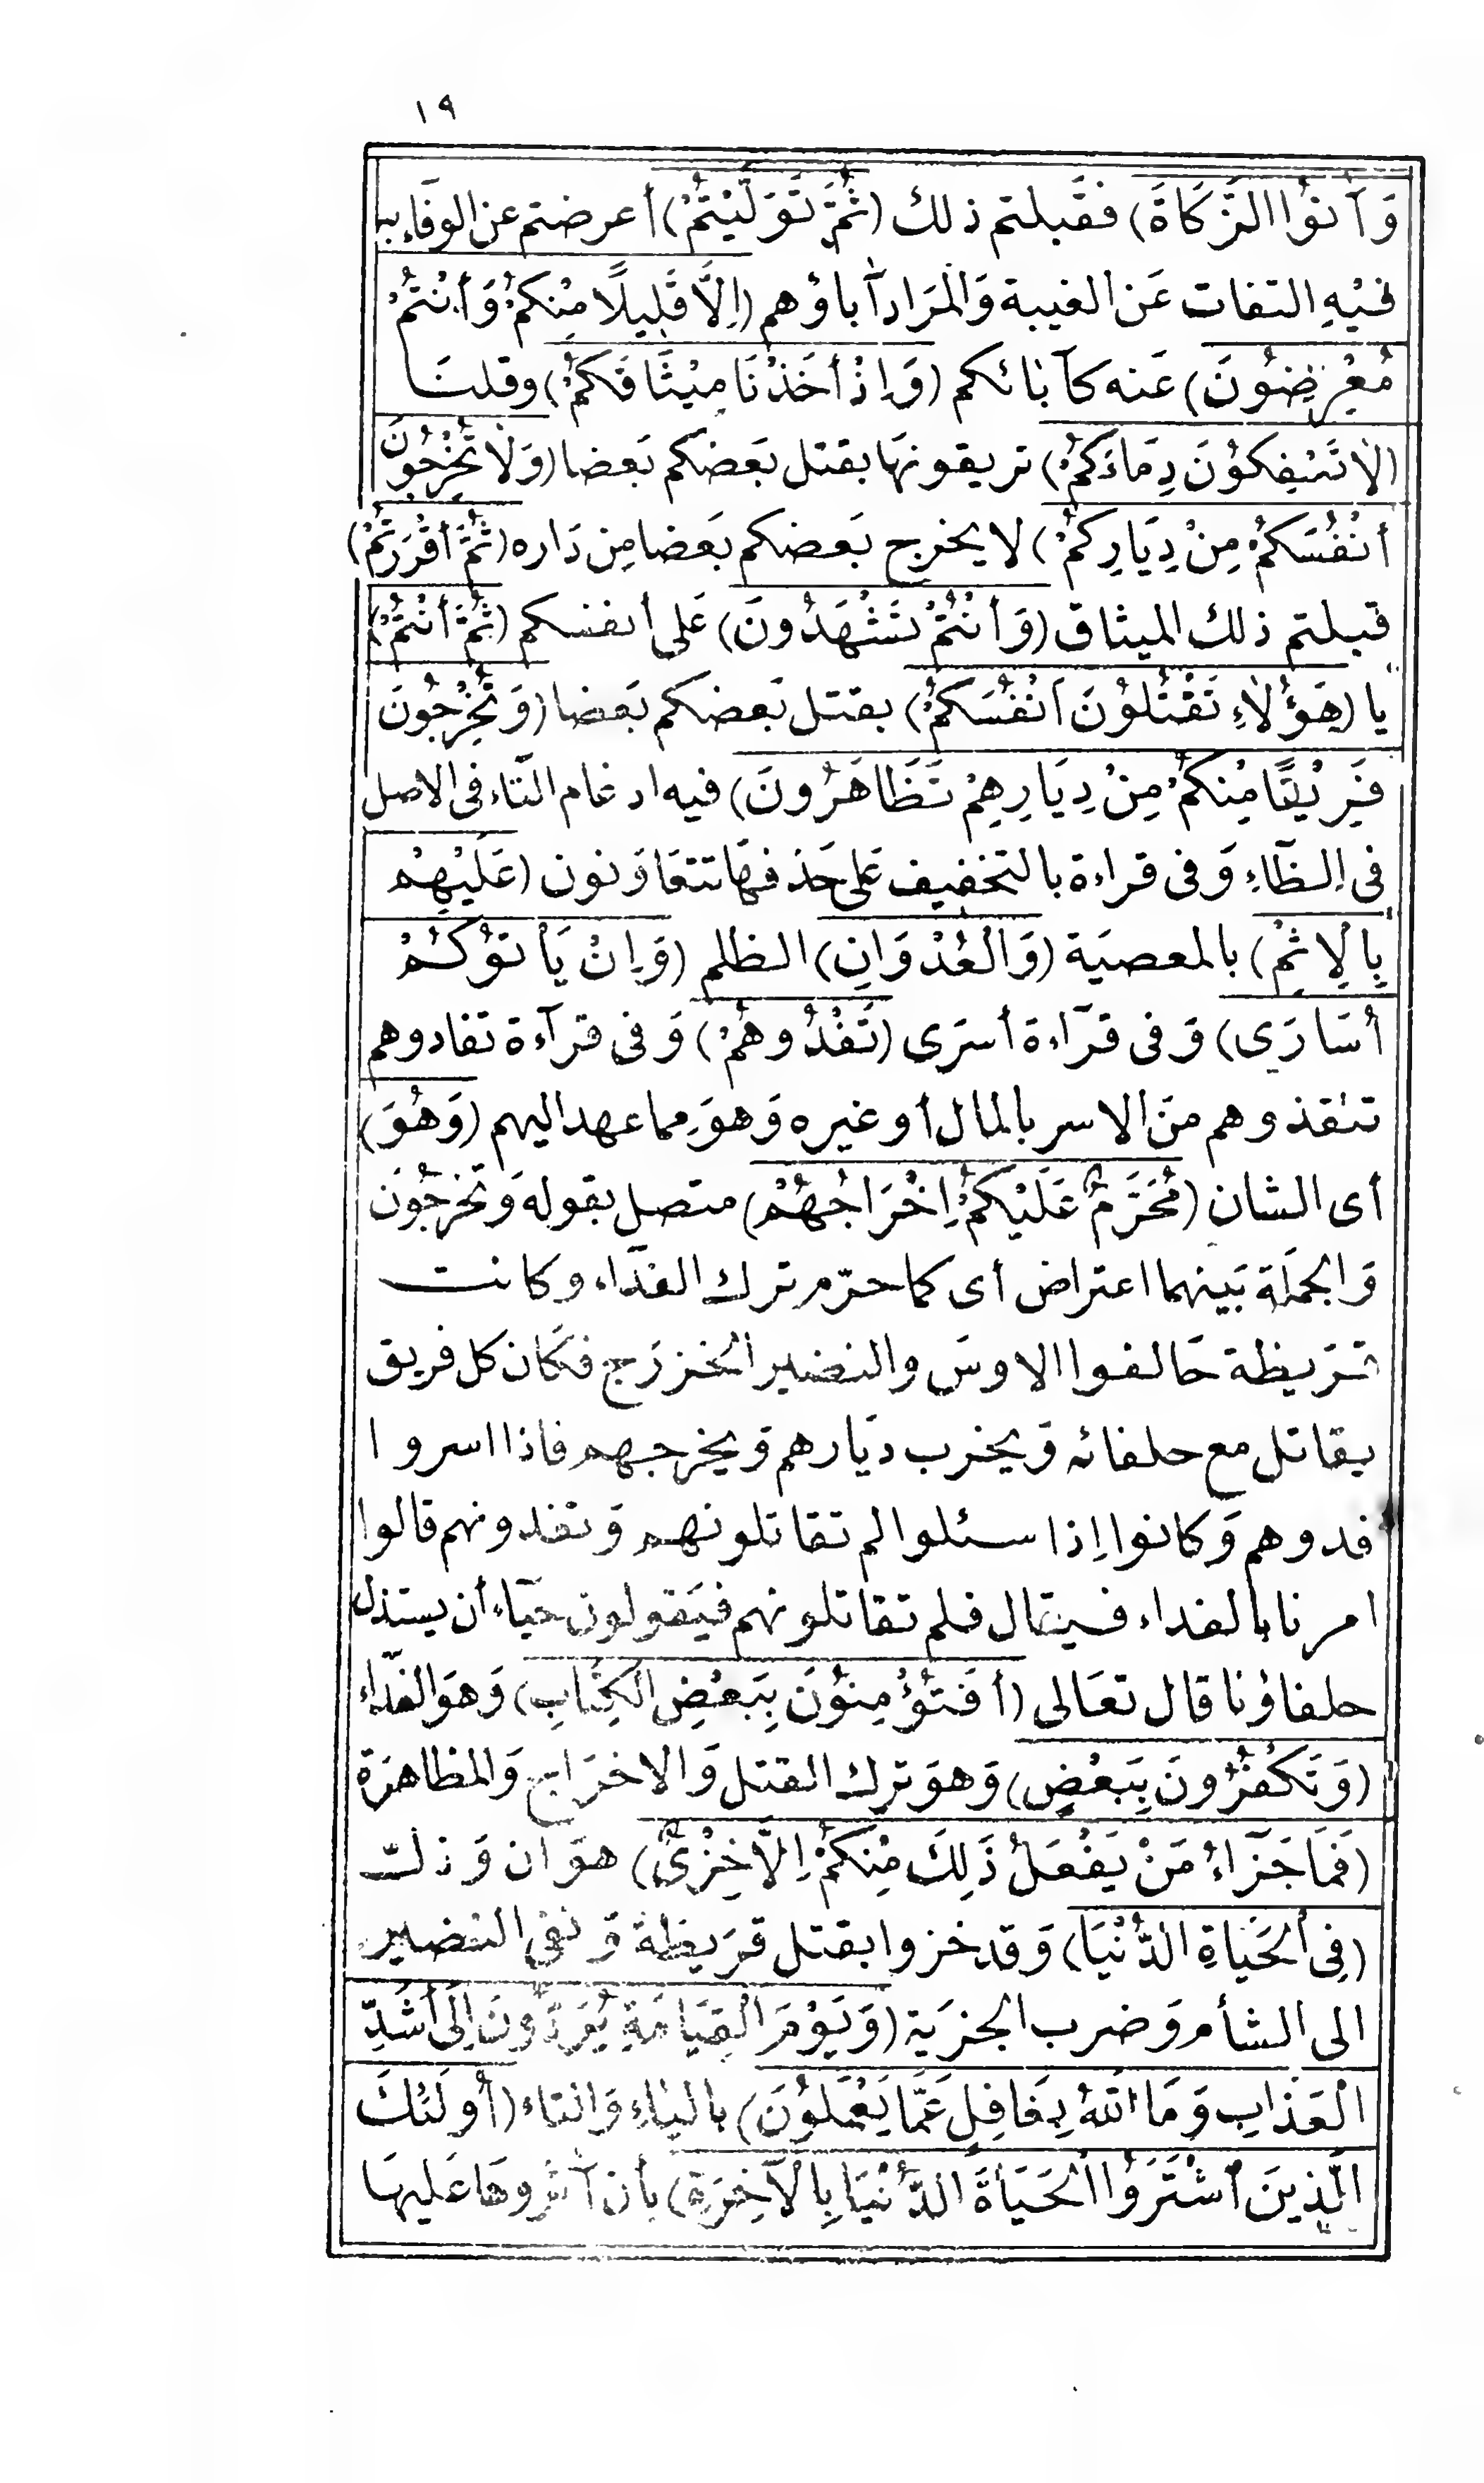 ١٩
وَآتوُا الزَّكَاةَ) فقَبلتم ذلك (ثُمَّ تَوَلَّيْتُمْ) أعرضتم عن الوفَاءِ به
فيْهِ التفات عَن الغيبة وَالمَراد آباؤهم (اِلَّا قَلِيلًا مِنْكمُْ وَأنْتُمْ
مُعْرِضوُنَ) عَنه كآبائكم (وَاِذْ أخَذْنَا مِيْثَاقَكمُْ) وقلنَا
(لاتَسْفِكوُنَ دِمَاءَكمُْ) تريقونهَا بقتل بَعضكم بَعضا (وَلاتُخْرِجُونَ
أنْفُسَكمُْ مِنْ دِيَارِكمُْ) لا يخرج بَعضكم بَعضا مِن دَاره (ثُمَّ أقْرَرْتمُْ)
قبلتم ذلك الميثاق (وَأنْتُمْ تَشْهَدُونَ) عَلى أنفسكم (ثُمَّ أنْتُمْ)
يا (هَؤُلاءِ تَقْتُلوُنَ اَنْفُسَكمُْ) بقتل بَعضكم بَعضا (وَتُخْرِجُونَ
فَرِيْقًا مِنْكمُْ مِنْ دِيَارِهِمْ تَظَّاهَرُونَ) فيه ادغام التّاء فى الاصل
فى الظّاءِ وَفى قراءة بالتخفيف عَلى حَذفهَا تتعَاوَنون (عَلَيْهِمْ
بِالْاِثْمِ) بالمعصيَة (وَالْعُدْوَانِ) الظلم (وَاِنْ يَأْتوُكُمْ
أُسَارَى) وَفى قرآءة أسرَى (تَفْدُوهمُْ) وَفى قرآءة تفادوهم
تنقذوهم منَ الاسر بالمال أو غيره وَهوَ مما عهد اليهم (وَهُوَ)
أى الشان (مُحَرَّمٌ عَلَيْكمُْ اِخْرَاجُهُمْ) متصل بقوله وَتخرجُونَ
وَالجملَة بَينهما اعتراض أى كما حرّم ترك الفدَاء وكانت
قرَيظة حَالفوا الاوسَ والنضير الخزرَج فكَان كل فريق
يقاتل مع حلفائه وَيخرب ديَارهم وَيخرجهم فاذا اسروا
فدوهم وَكانوا اِذا سئلوا لم تقاتلونهم وَتفدونهم قالوا
امرنا بالفداء فيقال فلم تقاتلونهم فيَقولون حيَاء أن يستذل
حلفاؤنا قال تعَالى (أفَتُؤْمِنوُنَ بِبَعْضِ الْكِتَابِ) وَهوَ الفدَاء
(وَتَكْفرُُونَ بِبَعْضٍ) وَهوَ ترك القتل وَالاخرَاج وَالمظاهرَة
(فَمَا جَزَآءُ مَنْ يَفْعَلُ ذَلِكَ مِنْكمُْ اِلَّا خِزْىٌ) هوَان وَذلّ
(فِى الْحَيَاةِ الدُّنْيَا) وَقد خزوا بقتل قرَيظة وَنفى النضير
الى الشأم وَضرب الجزيَة (وَيَوْمَ الْقِيَامَةِ يُرَدُّونَ اِلَى أَشَدِّ
الْعَذَابِ وَمَا اللّٰهُ بِغَافِلٍ عَمَّا يَعْمَلوُنَ) باليَاءِ وَالتاء (أُولَئكَ
الَّذِينَ اشْتَرَوُا الْحَيَاةَ الدُّنْيَا بِالْآخِرَةِ) بأن آثروهَا عَليهَا